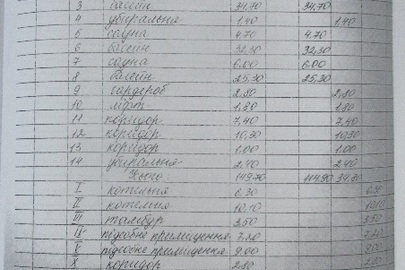 3 басейн 34,70 34,70
4 убиральня 1,40 1,40
5 сауна 4.70 4.70
6 басейн 32,30 32,30
7 сауна 6.00 6.00
8 басейн 25,30 25,30
9 гардероб 2.80 2.80
10 ліфт 1,80 1,80
11 коридор 7,40 7,40
12 коридор 10,30 10,30
13 коридор 1.00 1.00
14 убиральня 2.40 2.40
Усього 149.70 114.90 34.80
I котельня 6.30 6.30
II котельня 10,10 10,10
III тамбур 3,50 3,50
IV підсобне приміщення 7.20 7.20
V підсобне приміщення 9.00 9.00
X коридор 2.80 2.80